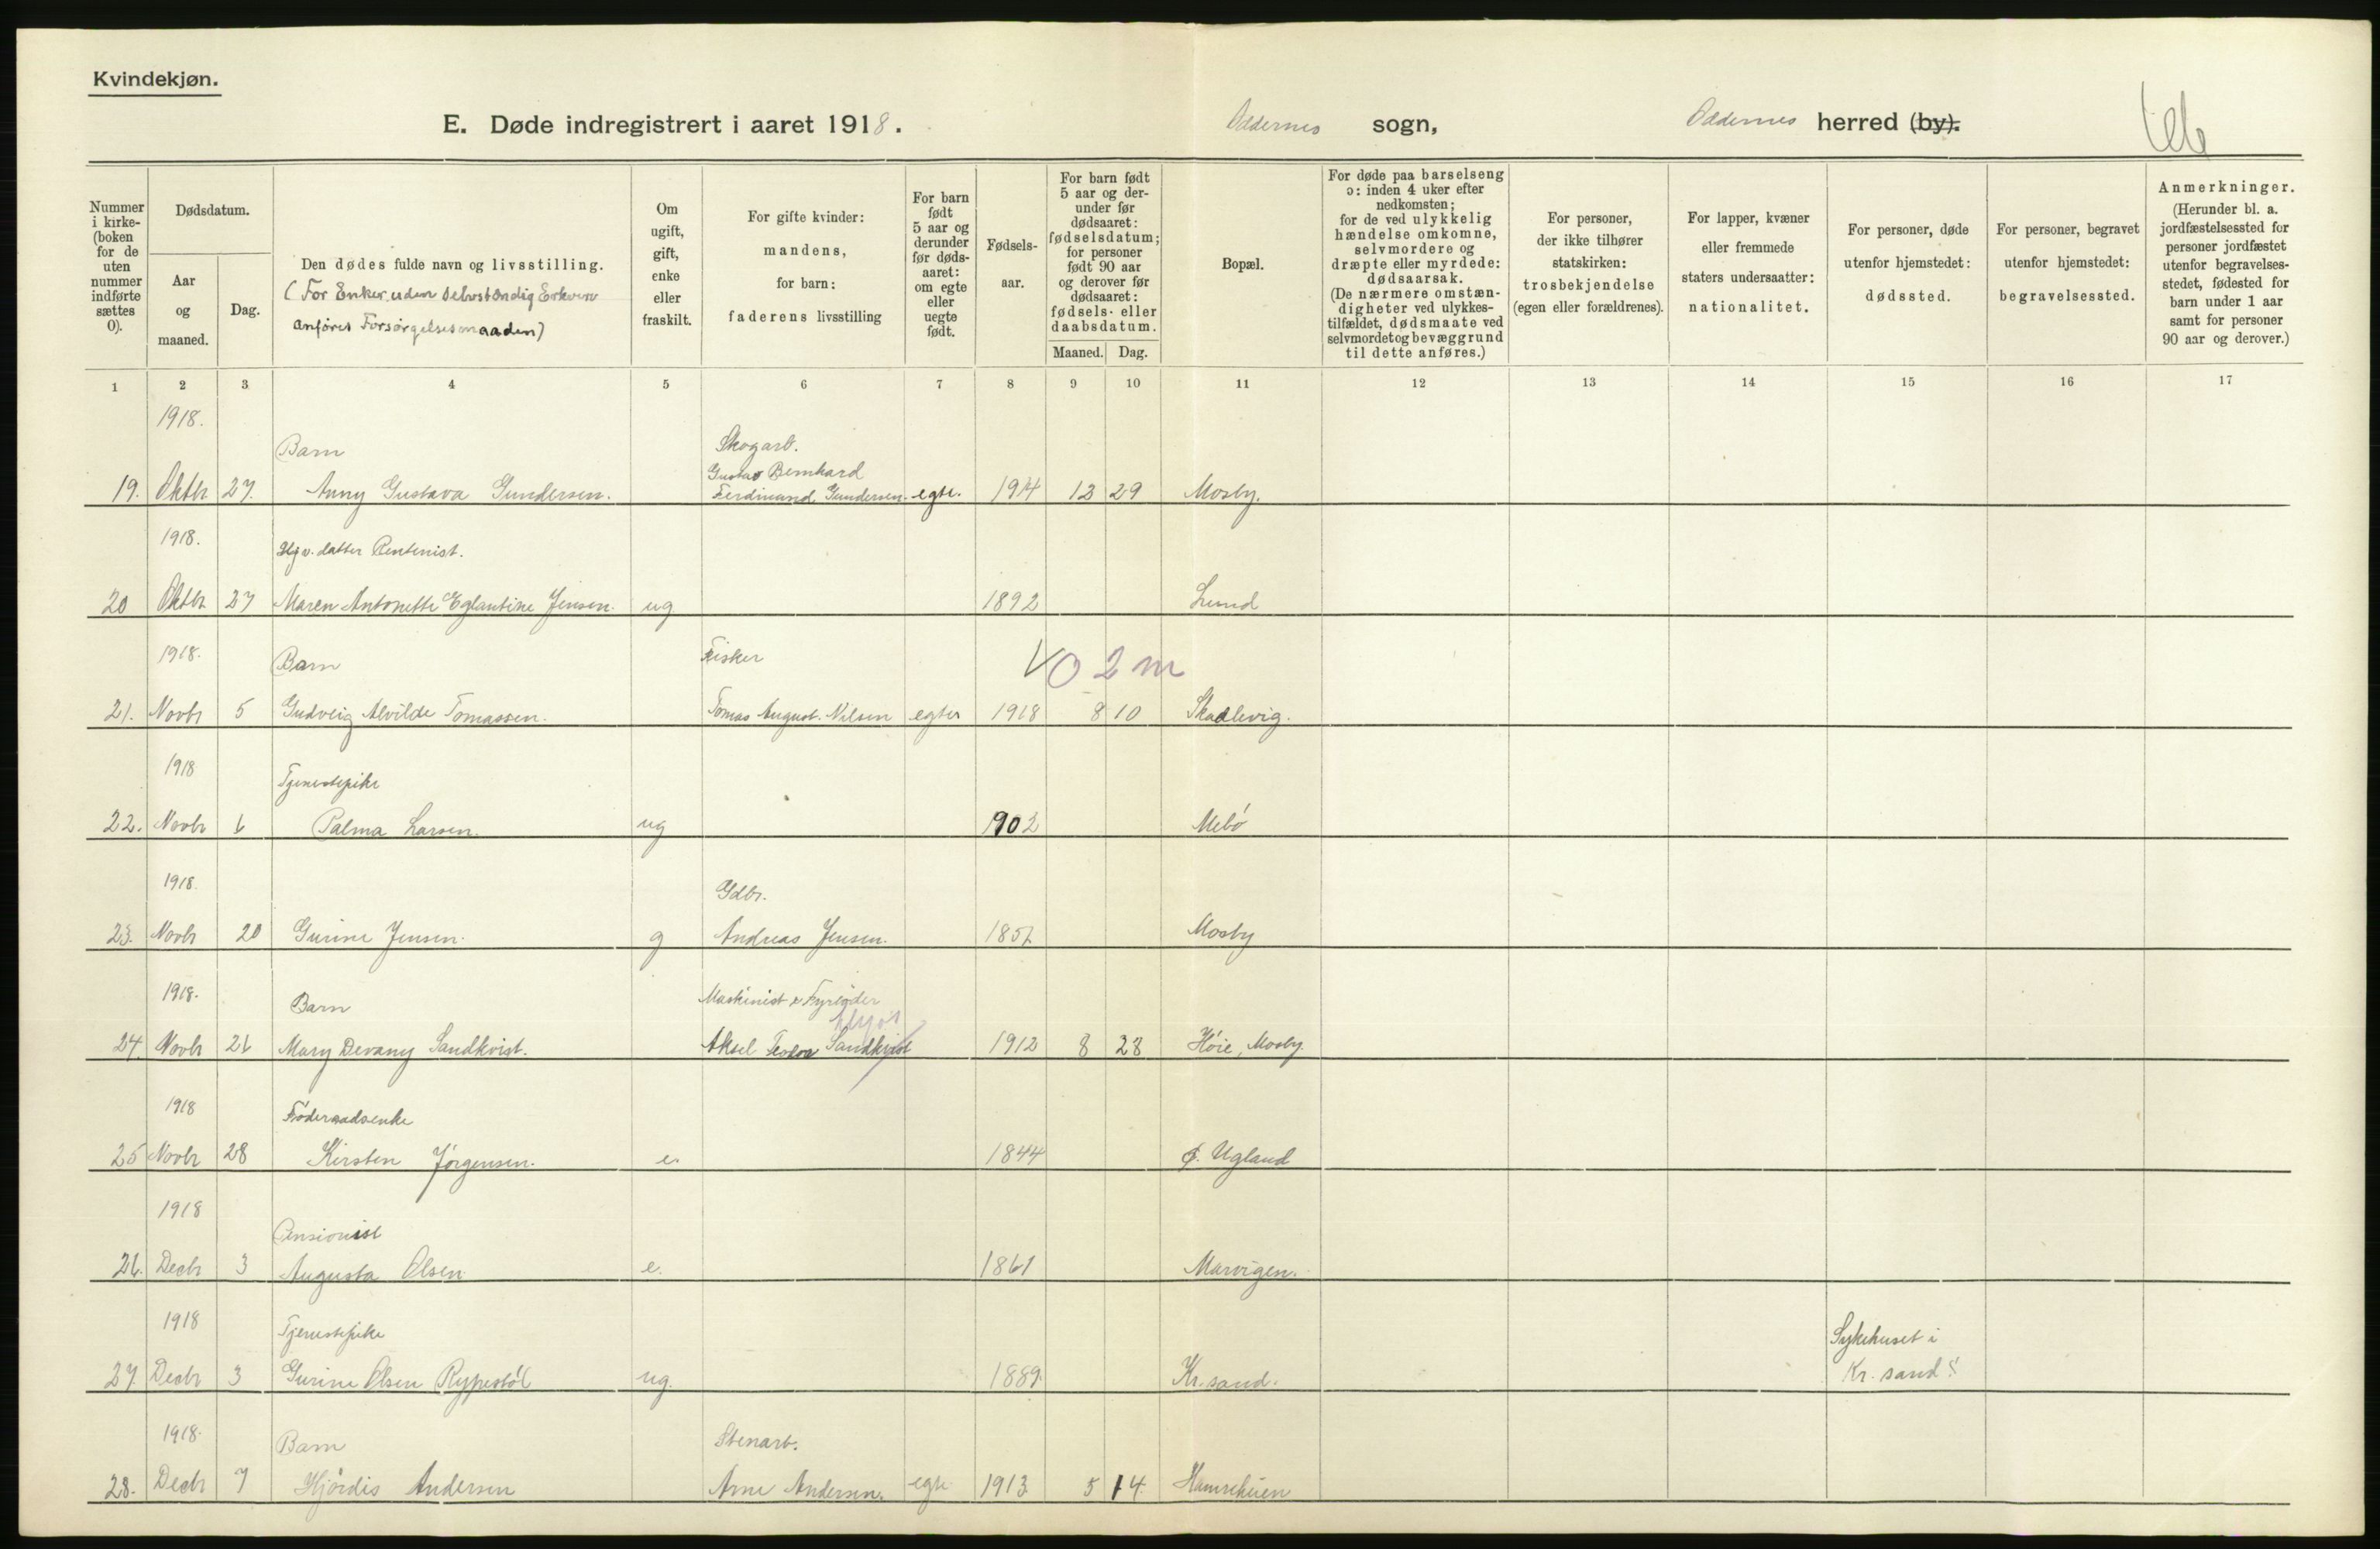 Kvindekjøn.
E. Døde indregistrert i aaret 1918. Oddernes sogn, Oddernes herred (by).
Nummer i kirke- (boken for de uten nummer indførte sættes 0).
Dødsdatum.
Aar og maaned.
Dag.
Den dødes fulde navn og livsstilling.
(For Enker uden selvstændig Erhverv
anføres Forsørgelsesmaaden)
Om ugift, gift, enke eller fraskilt.
For gifte kvinder: mandens, for barn: faderens livsstilling
For barn født 5 aar og derunder før døds- aaret: om egte eller uegte født.
Fødsels- aar.
For barn født 5 aar og der- under før dødsaaret: fødselsdatum; for personer født 90 aar og derover før dødsaaret: fødsels- eller daabsdatum.
Maaned. Dag.
Bopæl.
For døde paa barselseng ɔ: inden 4 uker efter nedkomsten; for de ved ulykkelig hændelse omkomne, selvmordere og dræpte eller myrdede: dødsaarsak. (De nærmere omstæn- digheter ved ulykkes- tilfældet, dødsmaate ved selvmordet og bevæggrund til dette anføres.)
For personer, der ikke tilhører statskirken: trosbekjendelse (egen eller forældrenes).
For lapper, kvæner eller fremmede staters undersaatter: nationalitet.
For personer, døde utenfor hjemstedet: dødssted.
For personer, begravet utenfor hjemstedet: begravelsessted.
Anmerkninger. (Herunder bl. a. jordfæstelsessted for personer jordfæstet utenfor begravelses- stedet, fødested for barn under 1 aar samt for personer 90 aar og derover.)
1 2 3 4 5 6 7 8 9 10 11 12 13 14 15 16 17
1918.
Barn Skogarb.
Gustav Bernhard
19. Oktbr 27. Anny Gustava Gundersen. Ferdinand Gundersen. egte. 1914 12 29 Mosby.
1918.
datter Rentenist.
20 Oktbr 27 Maren Antonette Eglantine Jensen. ug 1892 Lund
1918. Barn Fisker V 0 2 m
21. Novbr 5 Gudveig Alvilde Tomassen. Tomas August. Nilsen egter 1918 8 10 Skaalevig.
1918
Tjenestepike
22. Novbr 6 Palma Larsen. ug 1902 Mebö
1918.
Gdbr.
23. Novbr 20 Gurine Jensen. g Andreas Jensen. 1857 Mosby
1918. Barn Maskinist & Fyrböder
24. Novbr 26 Mary Devany Sandkvist. Aksel Teodor Sandkvist 1912 8 28 Höie, Mosby.
1918 Föderaadsenke
25 Novbr 28 Kirsten Jörgensen. e. 1844 Ø. Ugland
1918
Pensionist
26. Decbr 3 Augusta Olsen. e. 1861 Marvigen.
1918 Tjenestepike Sykehuset i
27. Decbr 3 Gurine Olsen Rypestöl ug. 1889. Kr.sand. Kr. sand S
1918. Barn Stenarb.
28. Decbr 7 Hjördis Andersen Arne Andersen. egte 1913 5 14. Hamreheien